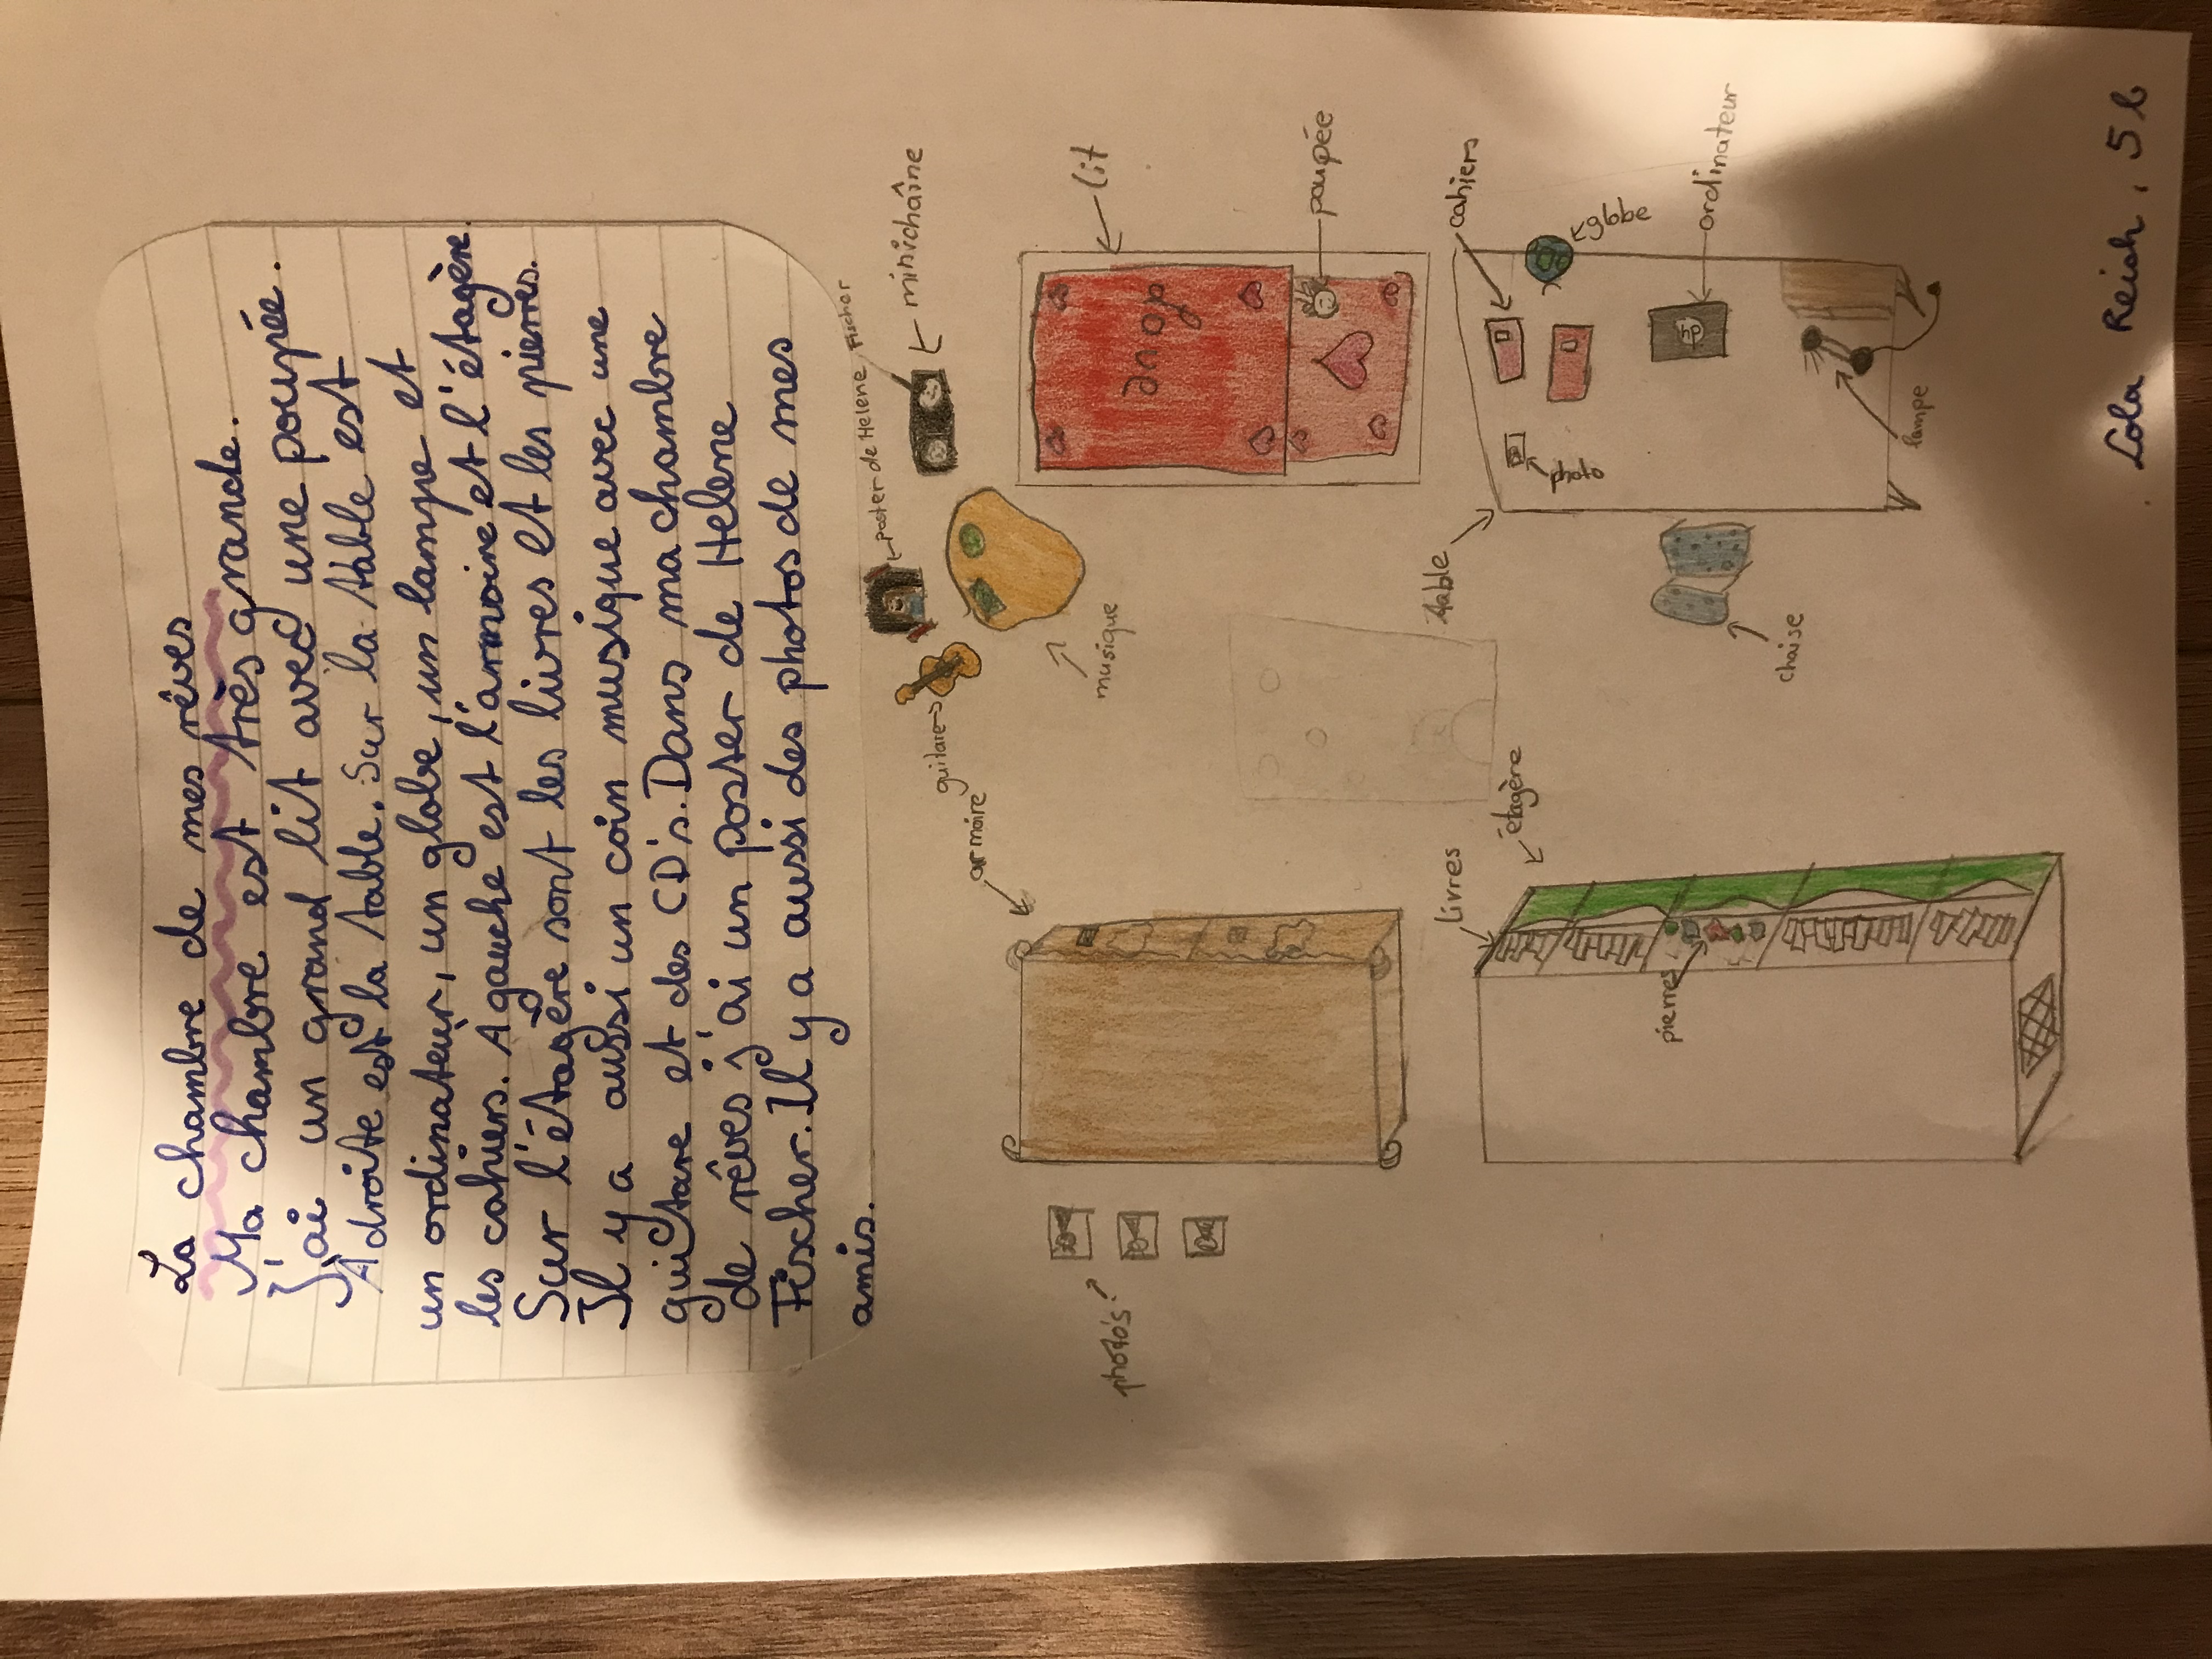 La chambre de mes rêves
Ma chambre est très grande.
J'ai un grand lit avec une poupée.
A droite est la table. Sur la table est
un ordinateur, un globe, un lampe et
les cahiers. A gauche est l'armoire et l'étagère.
Sur l'étagère sont les livres et les pierres.
Il y a aussi un coin musique avec une
guitare et des CD's. Dans ma chambre
de rêves j'ai un poster de Helene
Fischer. Il y a aussi des photos de mes
amis.
poster de Helene Fischer
minichaîne
guitare
musique
armoire
lit
poupée
photo's
livres
étagère
pierres
table
cahiers
globe
photo
ordinateur
hp
lampe
chaise
Lola Reich, 5b